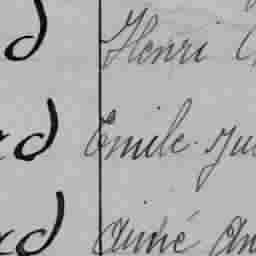 d Henri
rd Emile Jul
rd Aimé An